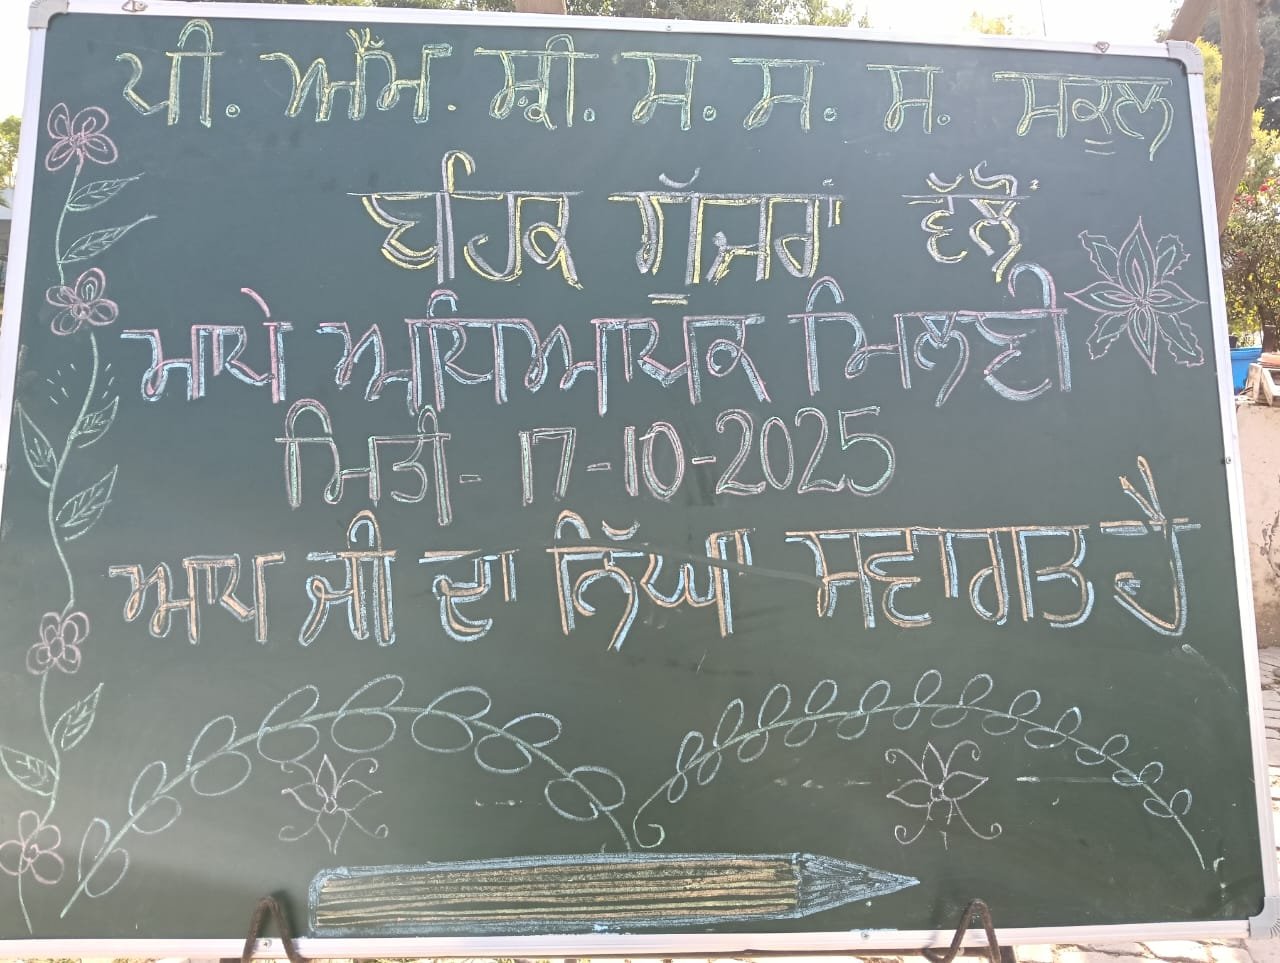 ਪੀ. ਐੱਮ. ਸ਼੍ਰੀ. ਸ. ਸ. ਸ. ਸਕੂਲ
ਬਹਿਕ ਗੁੱਜਰਾਂ ਵੱਲੋਂ
ਮਾਪੇ ਅਧਿਆਪਕ ਮਿਲਣੀ
ਮਿਤੀ- 17-10-2025
ਆਪ ਜੀ ਦਾ ਨਿੱਘਾ ਸਵਾਗਤ ਹੈ